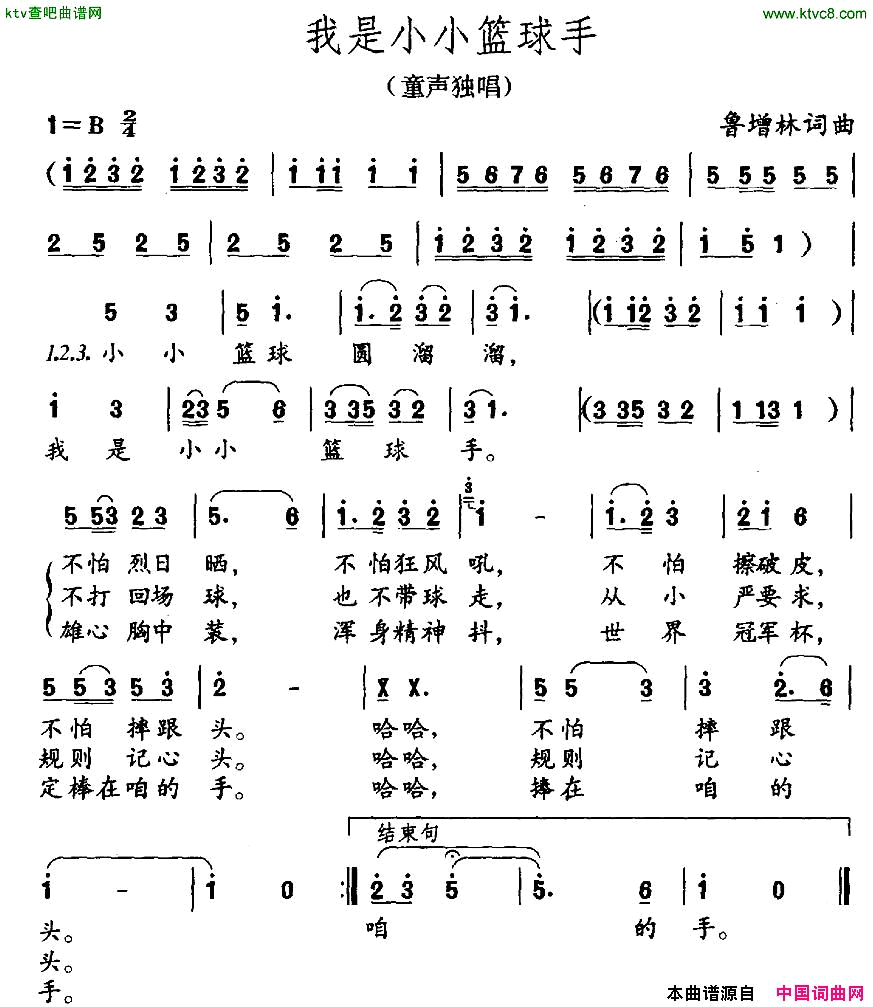 ktv查吧曲谱网
www.ktvc8.com
我是小小篮球手
（童声独唱）
1=B 2/4
鲁增林词曲
(1232 1232 | 1 11 1 1 | 5676 5676 | 5 55 5 5 |
2 5 2 5 | 2 5 2 5 | 1232 1232 | 1 5 1 ) |
5 3 | 5 1. | 1.2 32 | 3 1. | (1 12 32 | 11 1 ) |
1.2.3.小 小 篮球 圆 溜 溜，
1 3 | 23 5 6 | 3 35 3 2 | 3 1. | (3 35 3 2 | 1 13 1 ) |
我 是 小小 篮 球 手。
5 53 2 3 | 5. 6 | 1.2 3 2 | 3 1 - | 1.2 3 | 2 1 6 |
不怕 烈日 晒， 不怕狂风 吼， 不 怕 擦破皮，
不打 回场 球， 也不带球 走， 从 小 严要求，
雄心 胸中 装， 浑身精神 抖， 世 界 冠军杯，
5 53 5 3 | 2 - | X X. | 5 5 3 | 3 2. 6 |
不怕 摔跟 头。 哈哈， 不怕 摔 跟
规则 记心 头。 哈哈， 规则 记 心
定棒在咱的 手。 哈哈， 捧在 咱 的
结束句
1 - | 1 0 :‖ 2 3 5 | 5. 6 | 1 0 ‖
头。 咱 的 手。
头。
手。
本曲谱源自 中国词曲网